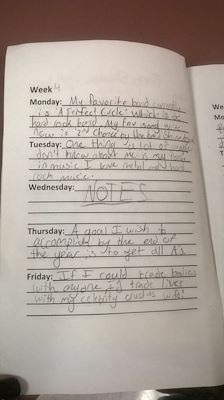 Week 4
Monday: My favorite band currently
is 'A Perfect Circle' which is a
hard rock band. My fav song
is '2nd chance' by the band
Tuesday: One thing a lot of people
don't know about me is my
in music. I love metal and hard
rock music.
Wednesday:
NOTES
Thursday: A goal I wish to
accomplish by the end of
the year is to get all As.
Friday: If I could trade bodies
with anyone I'd trade lives
with my celebrity crushs wife!
We
Mo
T